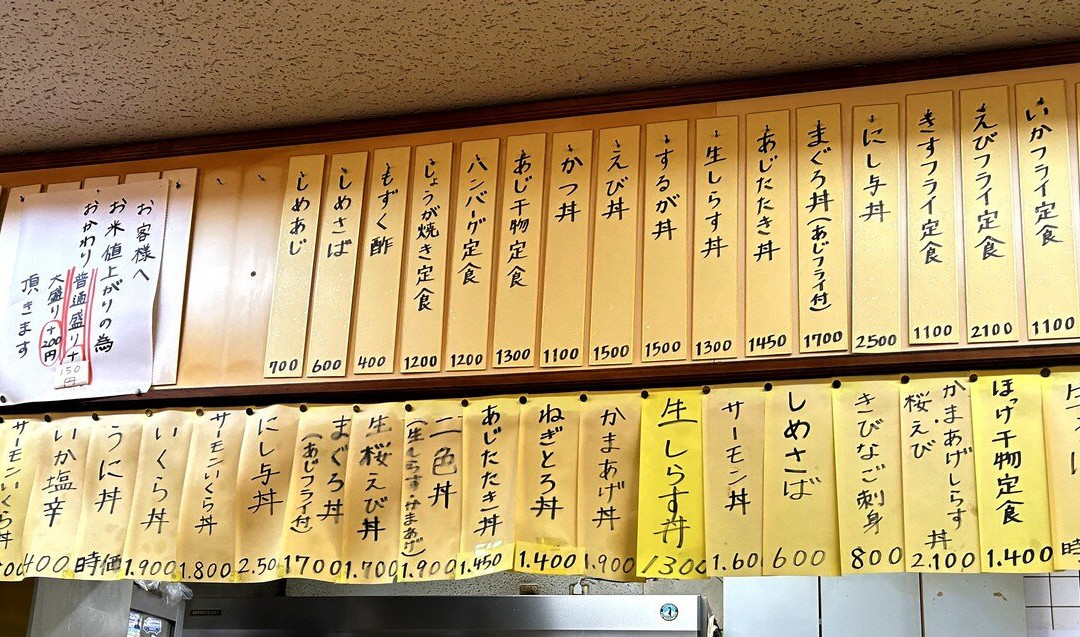 いかフライ定食 1100
えびフライ定食 2100
きすフライ定食 1100
にし与丼 2500
まぐろ丼(あじフライ付) 1700
あじたたき丼 1450
生しらす丼 1300
するが丼 1500
えび丼 1500
かつ丼 1100
あじ干物定食 1300
ハンバーグ定食 1200
しょうが焼き定食 1200
もずく酢 400
しめさば 600
しめあじ 700
お客様へ
お米値上がりの為
おかわり普通盛り+150円
大盛り+200円
頂きます
ほっけ干物定食 1.400
かまあげしらす
桜えび丼 2.100
きびなご刺身 800
しめさば 600
サーモン丼 1.60
生しらす丼 1300
かまあげ丼 1.900
ねぎとろ丼 1.400
あじたたき丼 1.450
二色丼
(生しらす・かまあげ) 1.900
生桜えび丼 1.700
まぐろ丼
(あじフライ付) 1700
にし与丼 2.50
サーモンいくら丼 1.800
いくら丼 1.900
うに丼 時価
いか塩辛 400
サーモンいくら丼